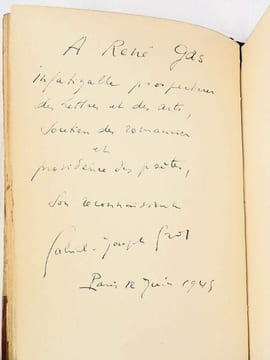 A René Gas
infatigable prospecteur
des lettres et des arts,
soutien des romanciers
et
providence des poètes,
Son reconnaissant
Gabriel-Joseph Gros
Paris 12 Juin 1945